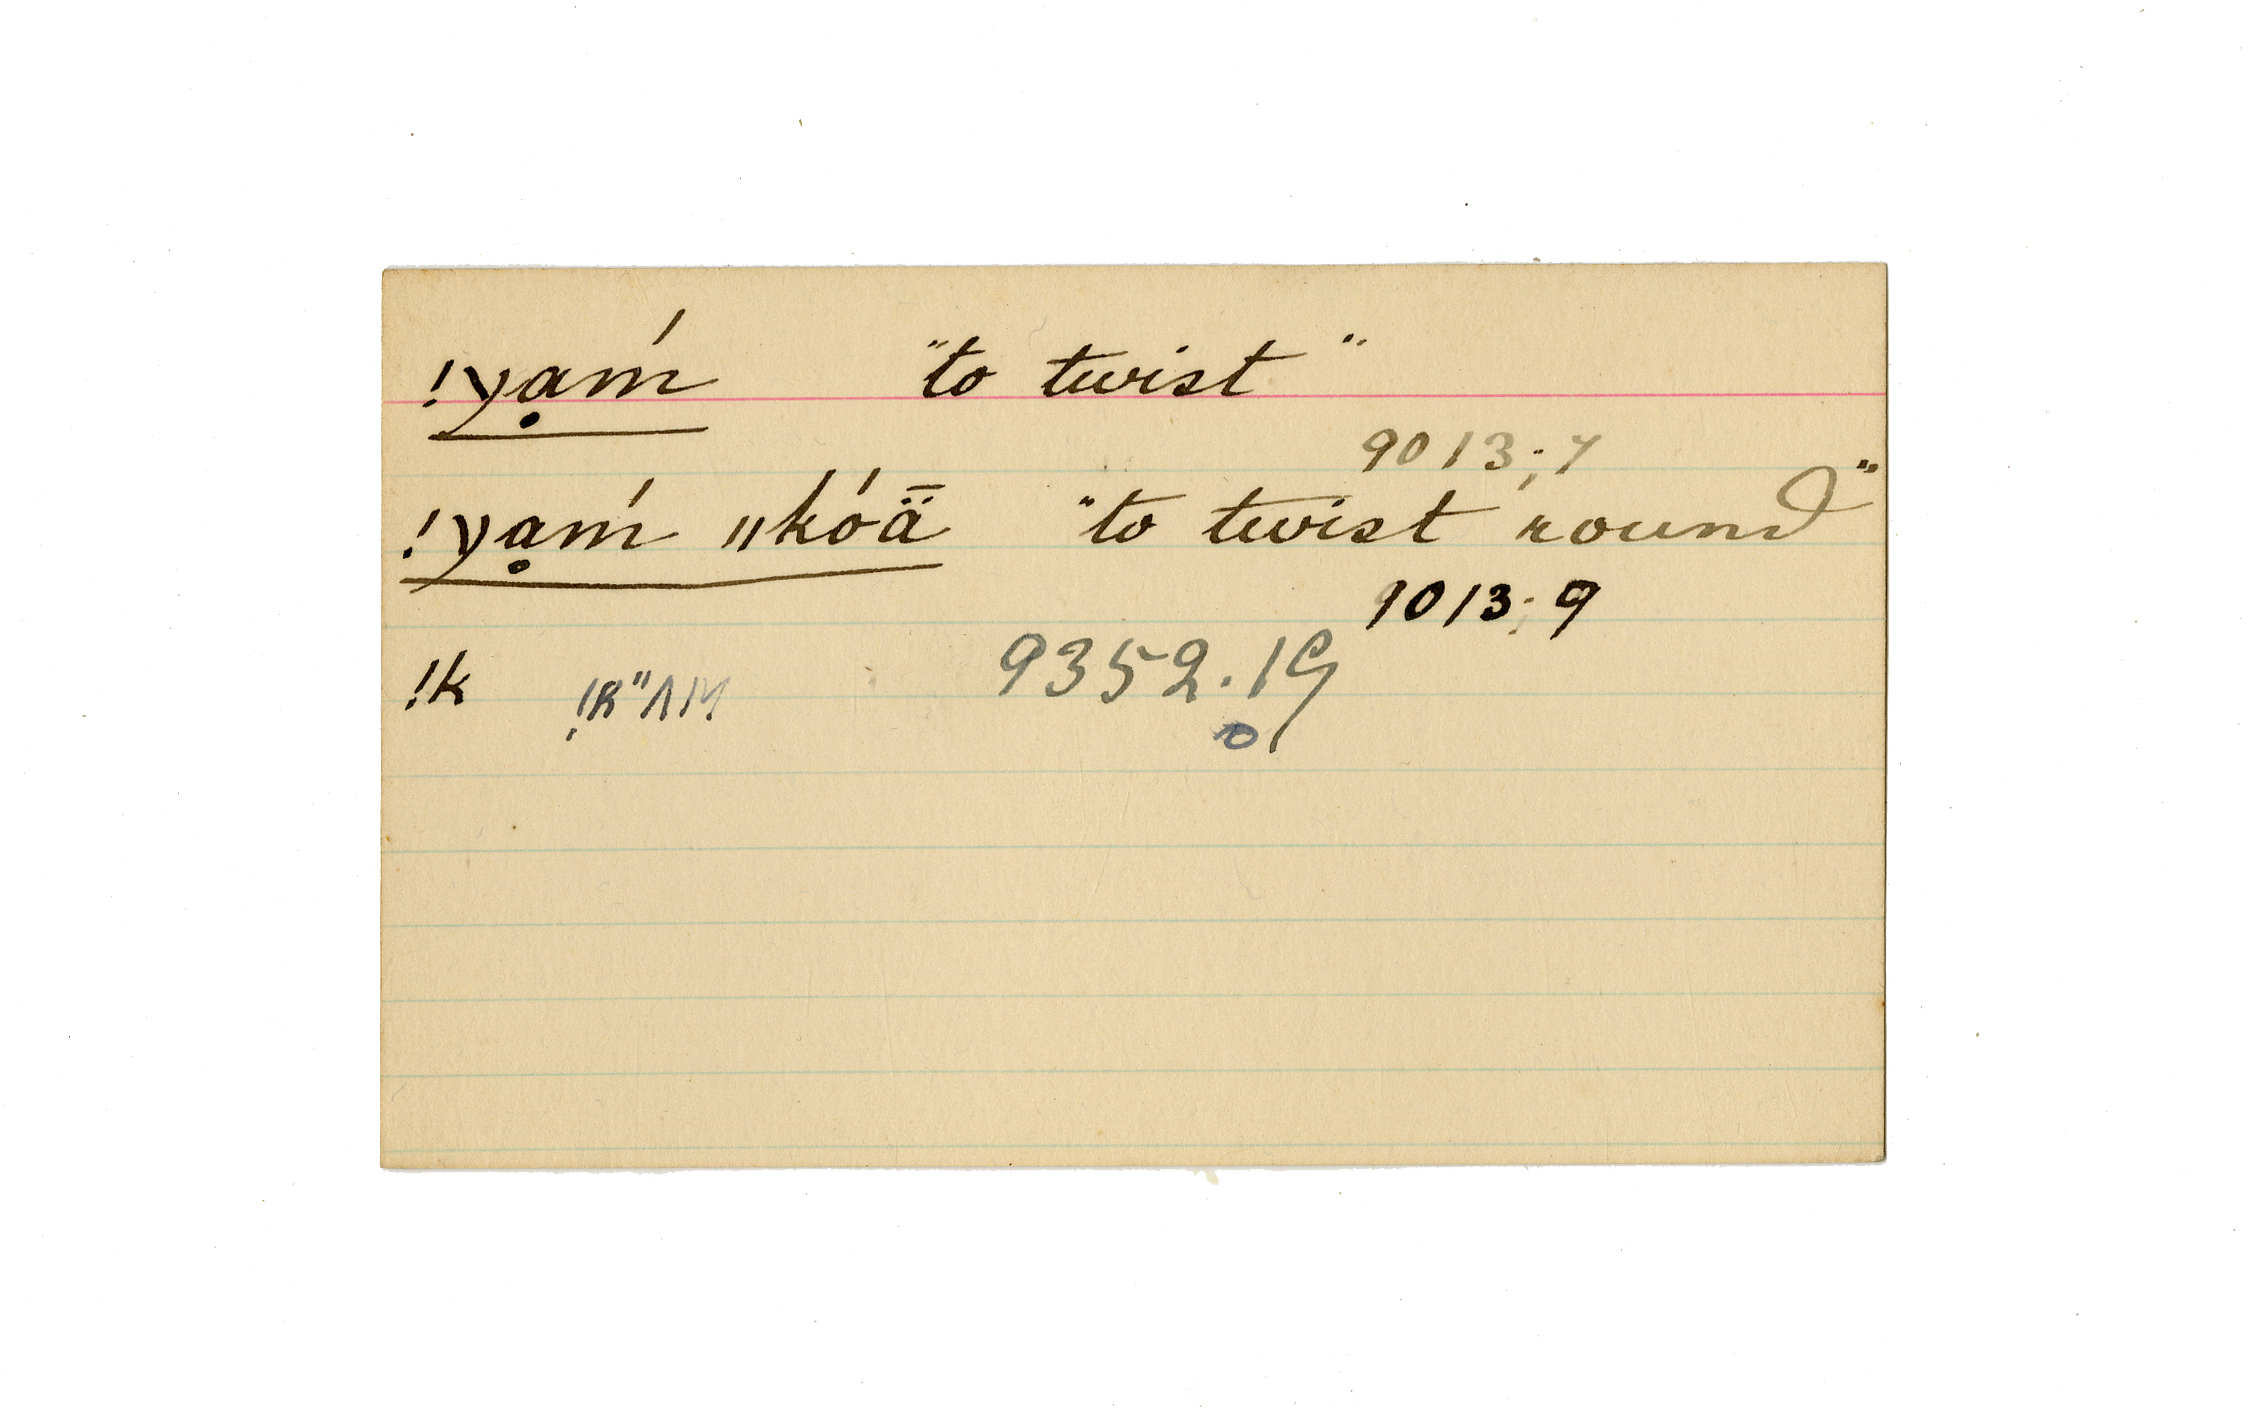 !γạḿ "to twist"
9013;7
!γạḿ ǁkóä̅ "to twist round"
9013;9
!k 9352.19